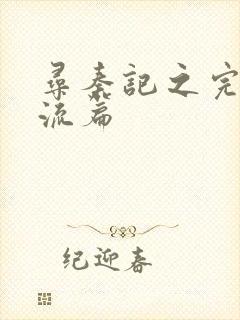 尋秦記之完
流篇
纪迎春